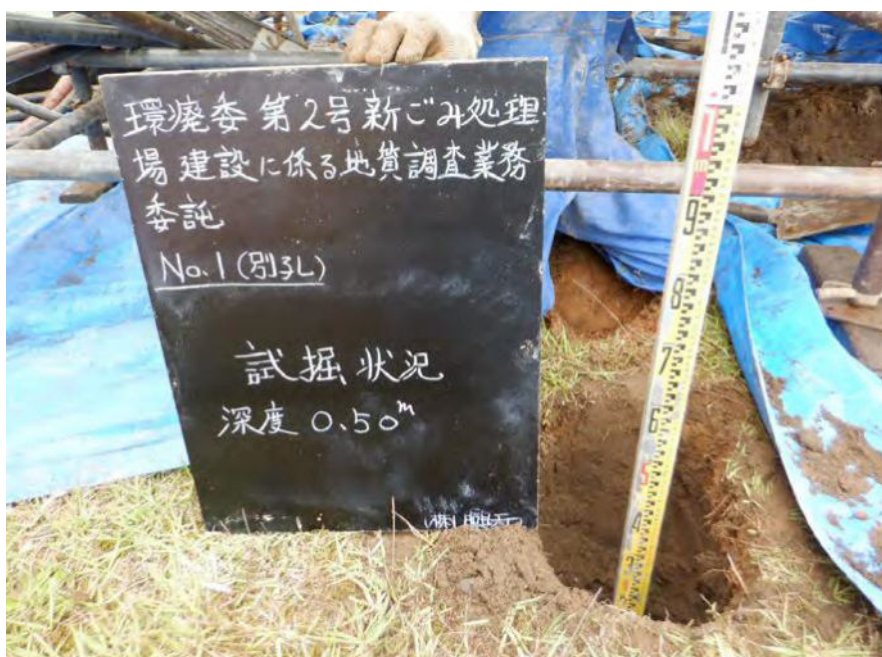 環廃委 第2号新ごみ処理
場建設に係る地質調査業務
委託
No.1(別孔)
試掘状況
深度 0.50m
1
9
8
7
6
5
4